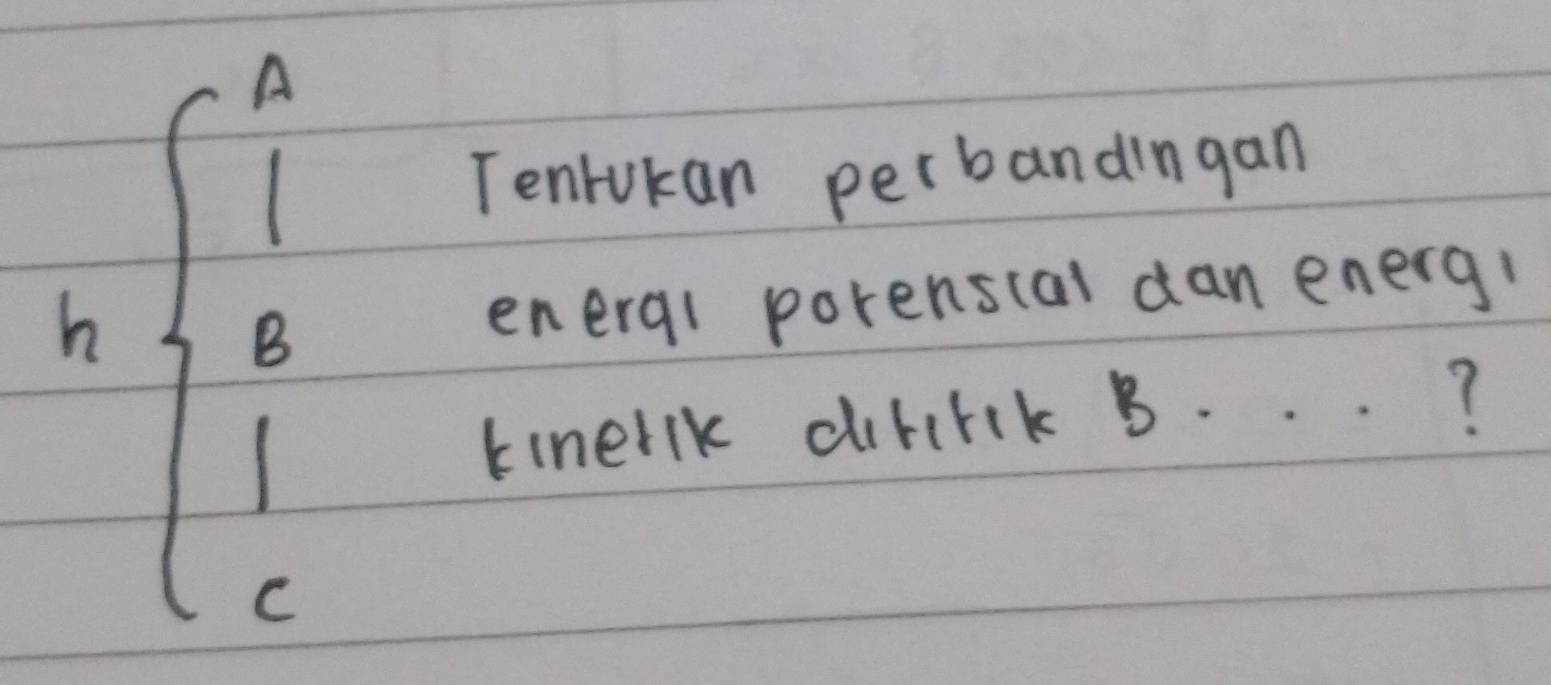 A
Tentukan perbandingan
h B energi potensial dan energi
kinetik dititik B . . . ?
C